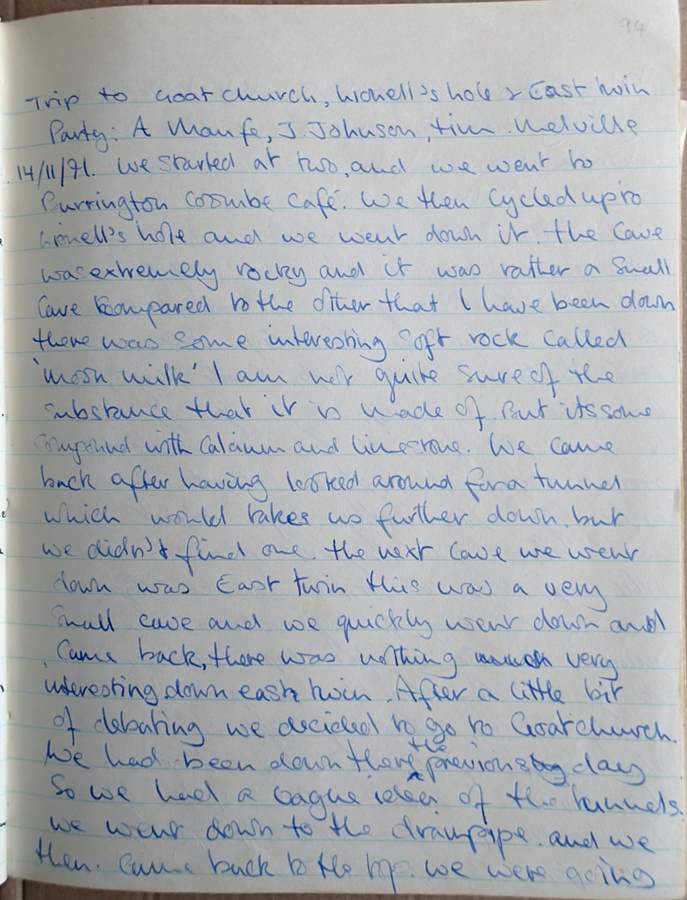 94
Trip to Goatchurch, Lionell's hole & East twin
Party: A Manfe, J. Johnson, tim. Melville
14/11/71. We started at two, and we went to
Burrington Coombe Café. We then cycled up to
Lionell's hole and we went down it. the cave
was extremely rocky and it was rather a small
cave compared to the other that I have been down
there was some interesting soft rock called
'moon milk' I am not quite sure of the
substance that it is made of. But its some
compound with calcium and limestone. We came
back after having looked around for a tunnel
which would takes us further down. but
we didn't find one. the next cave we went
down was East twin this was a very
small cave and we quickly went down and
came back, there was nothing very
interesting down east twin. After a little bit
of debating we decided to go to Goatchurch.
We had been down there the previous day
So we had a vague idea of the tunnels.
we went down to the drainpipe. and we
then. came back to the top. we were going